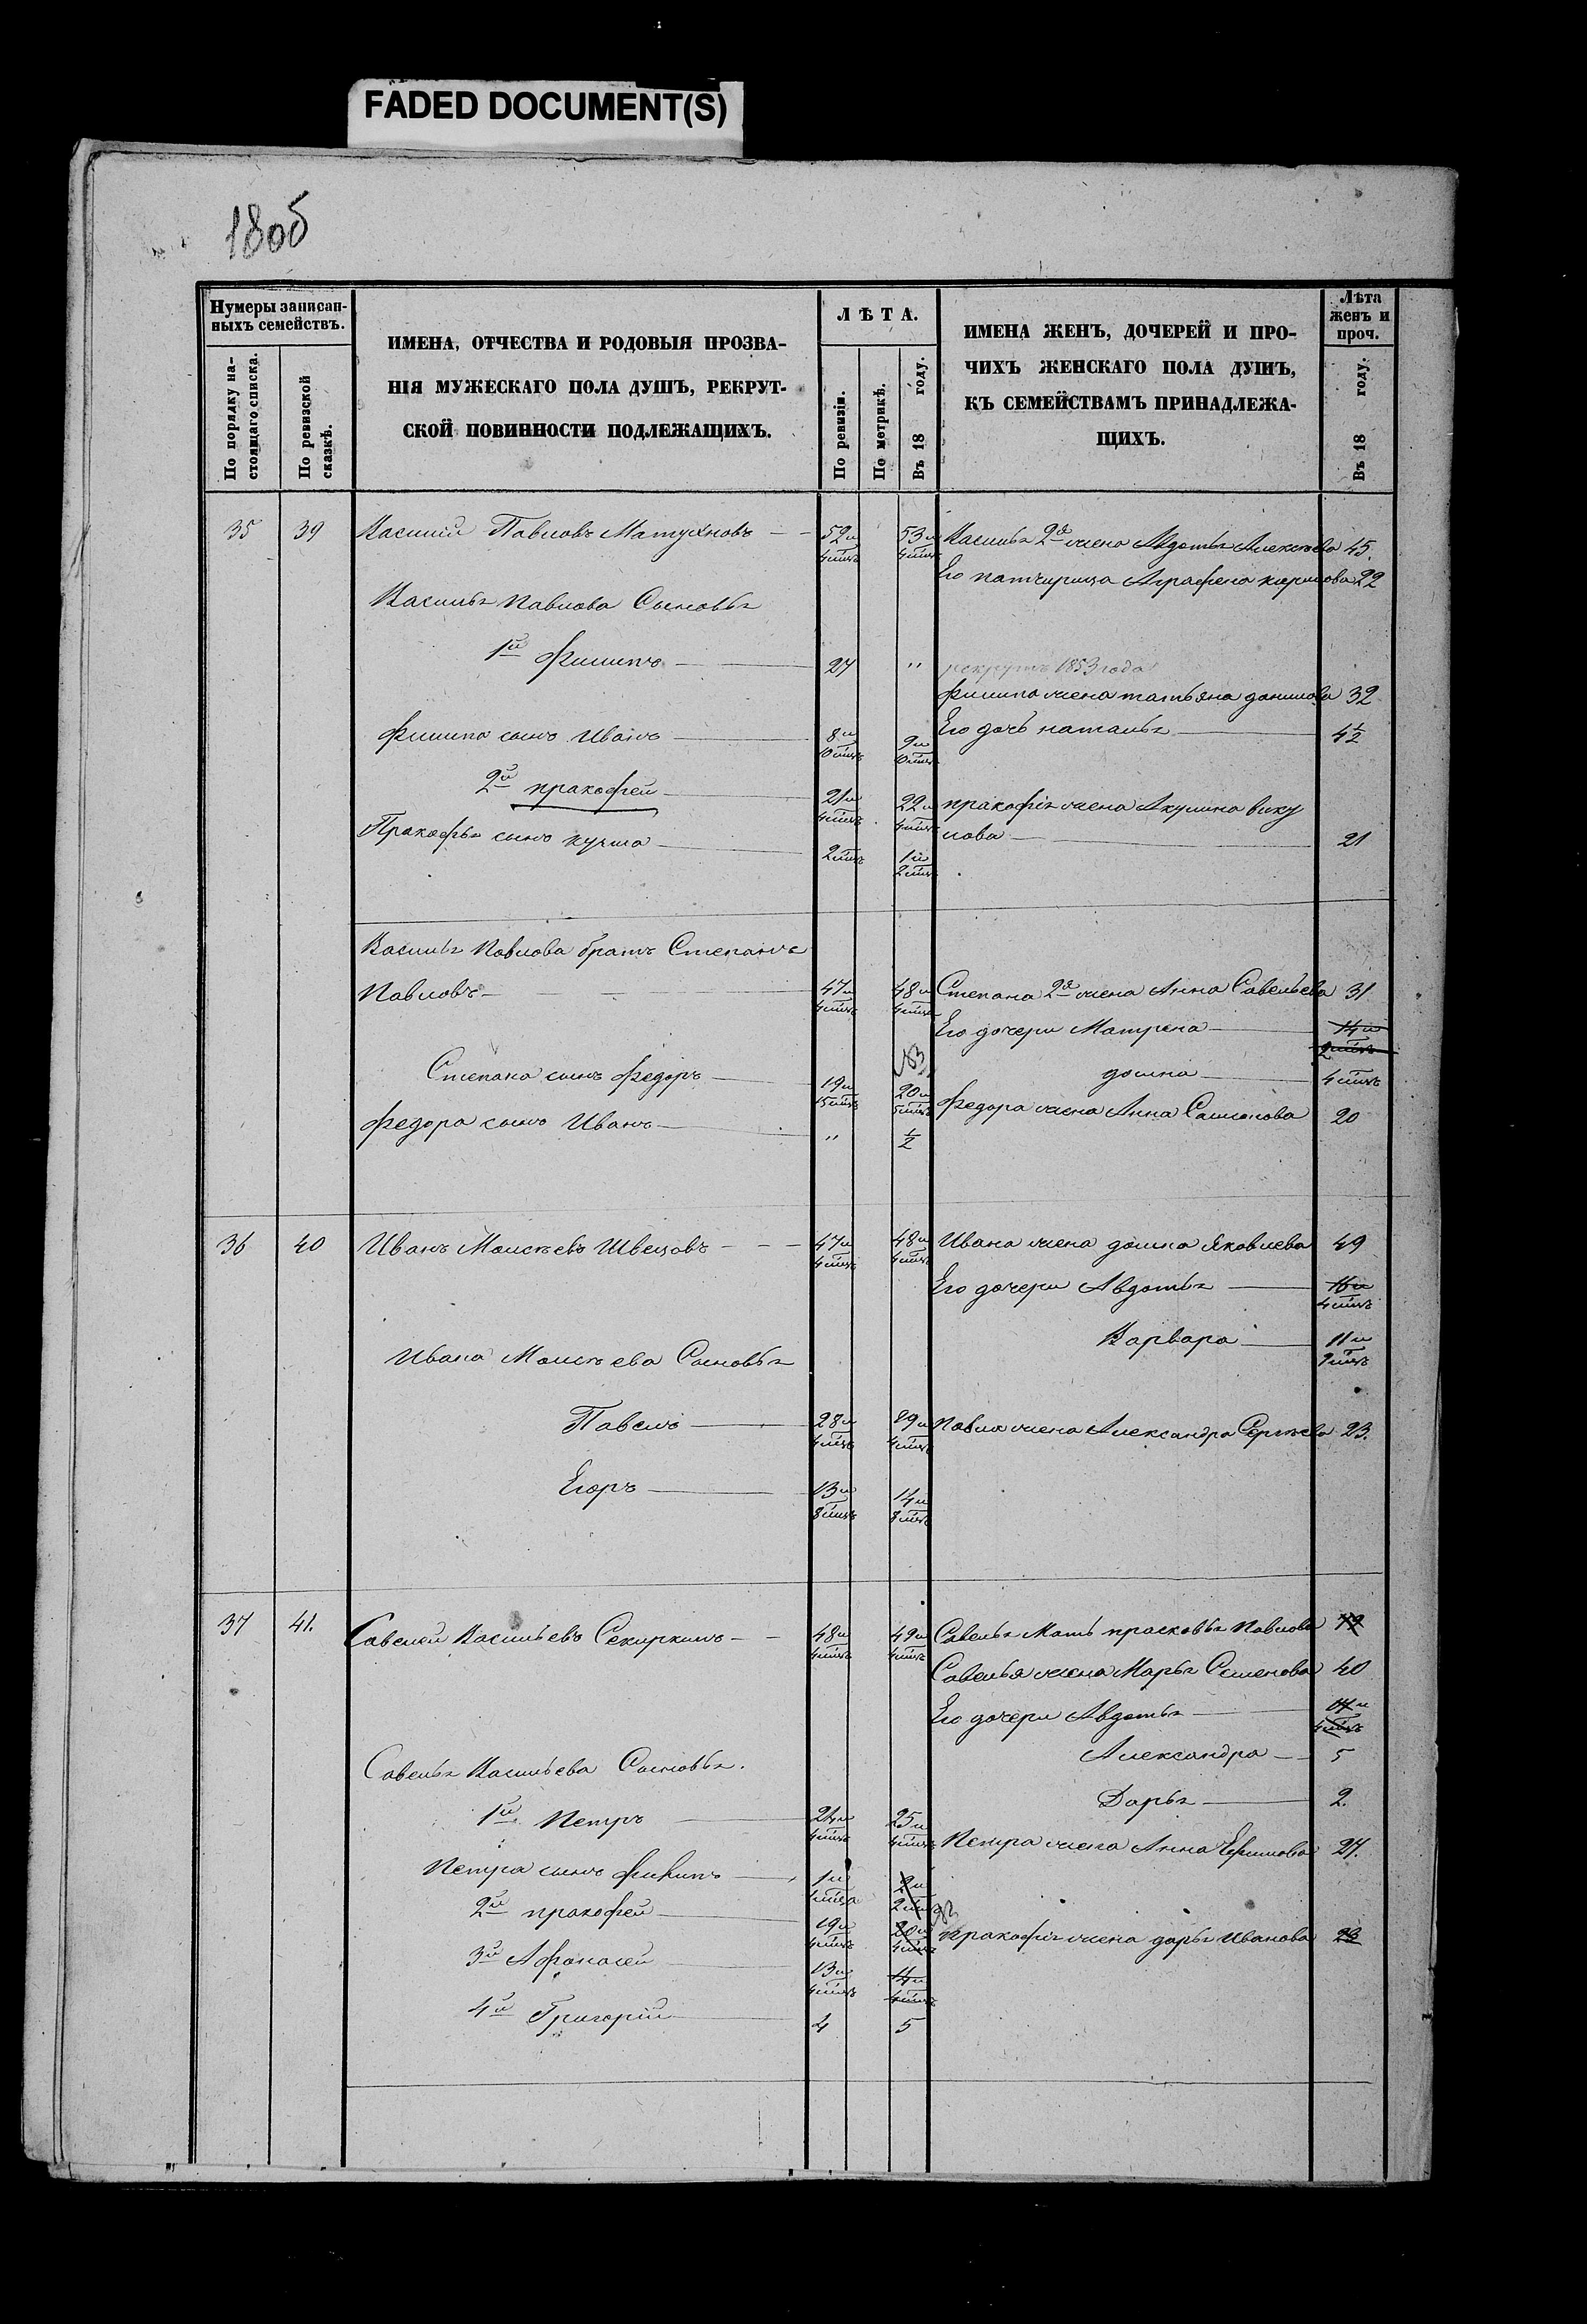 FADED DOCUMENT(S)
180б
Нумеры записан-
ныхъ семействъ.
По порядку на-
стоящаго списка.
По ревизской
сказкѣ.
ИМЕНА, ОТЧЕСТВА И РОДОВЫЯ ПРОЗВА-
НІЯ МУЖЕСКАГО ПОЛА ДУШЪ, РЕКРУТ-
СКОЙ ПОВИННОСТИ ПОДЛЕЖАЩИХЪ.
ЛѢТА.
По ревизіи.
По метрикѣ.
Въ 18 году.
ИМЕНА ЖЕНЪ, ДОЧЕРЕЙ И ПРО-
ЧИХЪ ЖЕНСКАГО ПОЛА ДУШЪ,
КЪ СЕМЕЙСТВАМЪ ПРИНАДЛЕЖА-
ЩИХЪ.
Лѣта
женъ и
проч.
Въ 18 году.
35 39 Василий Павловъ 52 53 Василья 2я жена Авдотья Алексѣева 45.
4 4 Его патчирица Аграфена 22
Василья Павлова Сыновья
1й Филипъ 27 " рекрутъ 1853 года
Филипа жена татьяна данилова 32
Филипа сынъ Иванъ 8 9 Его дочь наталья 4½
10 10
2й пракофей 21 22 пракофья жена Акулина вику
4 4 лова 21
Пракофья сынъ кузма 2 1
2
Василья Павлова братъ Степанъ
Павловъ 47 48 Степана 2я жена Анна Савельева 31
4 4 Его дочери Матрена 14
2
домна 4
Степана сынъ Федоръ 19 20
5 5 Федора жена Анна 20
Федора сынъ Иванъ " ½
36 40 Иванъ Моисѣевъ Швецовъ 47 48 Ивана жена домна Яковлева 49
4 4 Его дочери Авдотья 16
4
Варвара 11
9
Ивана Моисѣева Сыновья
Павелъ 28 29 Павла жена Александра Сергѣева 23.
4 4
Егоръ 13 14
8 8
37 41. Савелей Васильевъ Секиркинъ 48 49 Савелья Мать прасковья Павлова
4 4 Савелья жена Марья Семенова 40
Его дочери Авдотья
Александра 5
Савелья Васильева Сыновья.
Дарья 2.
1й Петръ 24 25
4 4 Петра жена Анна Ефимова 24.
Петра сынъ Филипъ 1 2
2
2й пракофей 19 20 пракофья жена дарья Иванова 23
4 4
3й Афонасей 13 14
4 4
4й Григорій 4 5